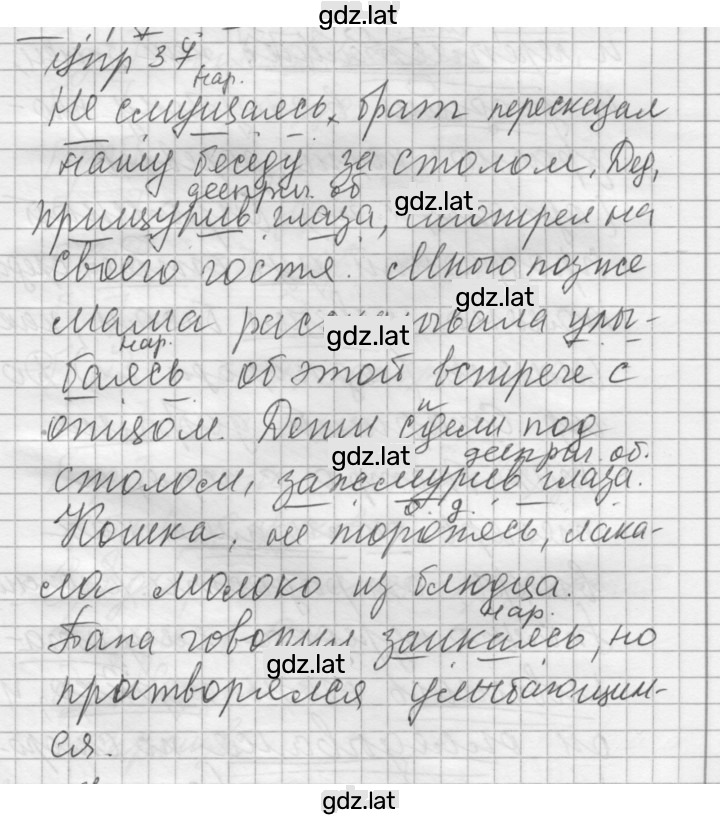 gdz.lat
Упр 37
нар.
Не смущаясь, брат пересказал
нашу беседу за столом. Дед,
дееприч. об
gdz.lat
прищурив глаза, смотрел на
своего гостя. Много позже
gdz.lat
мама рассказывала улы-
gdz.lat
нар.
баясь об этой встрече с
отцом. Дети сидели под
gdz.lat
дееприч. об.
столом, зажмурив глаза.
о. д.
Кошка, не торопясь, лака-
ла молоко из блюдца.
нар.
Папа говорил заикаясь, но
gdz.lat
притворялся улыбающим-
ся.
gdz.lat